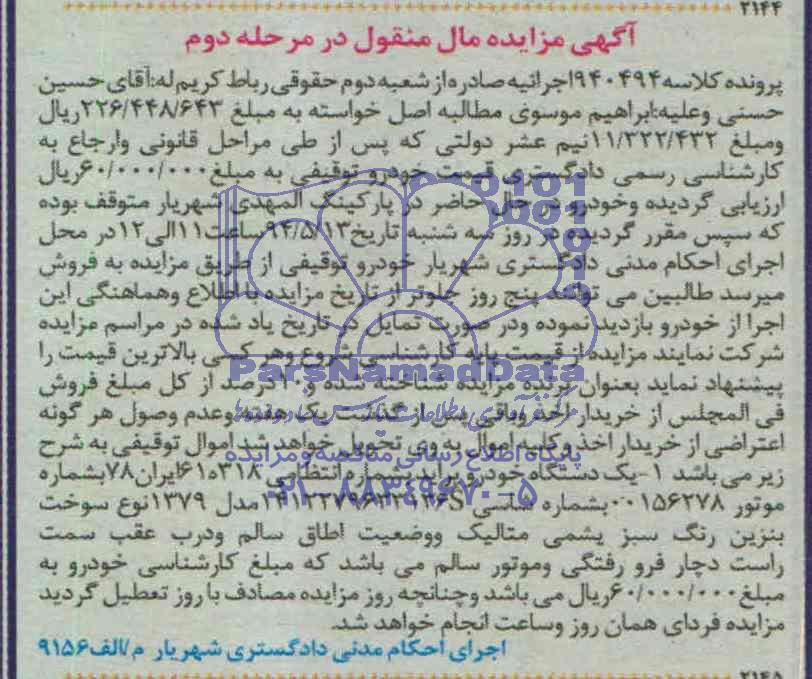 ۲۱۴۴
آگهی مزایده مال منقول در مرحله دوم
پرونده کلاسه۹۴۰۴۹۴اجرائیه صادره از شعبه دوم حقوقی رباط کریم له:آقای حسین
حسنی وعلیه:ابراهیم موسوی مطالبه اصل خواسته به مبلغ ۲۲۶/۴۴۸/۶۴۳ریال
ومبلغ ۱۱/۳۲۲/۴۳۲نیم عشر دولتی که پس از طی مراحل قانونی وارجاع به
کارشناسی رسمی دادگستری قیمت خودرو توقیفی به مبلغ۶۰/۰۰۰/۰۰۰ریال
ارزیابی گردیده وخودرو در حال حاضر در پارکینگ المهدی شهریار متوقف بوده
که سپس مقرر گردیده در روز سه شنبه تاریخ۹۴/۵/۱۳ساعت۱۱الی۱۲در محل
اجرای احکام مدنی دادگستری شهریار خودرو توقیفی از طریق مزایده به فروش
میرسد طالبین می توانند پنج روز جلوتر از تاریخ مزایده با اطلاع وهماهنگی این
اجرا از خودرو بازدید نموده ودر صورت تمایل در تاریخ یاد شده در مراسم مزایده
شرکت نمایند مزایده از قیمت پایه کارشناسی شروع وهر کسی بالاترین قیمت را
پیشنهاد نماید بعنوان برنده مزایده شناخته شده و۱۰درصد از کل مبلغ فروش
فی المجلس از خریدار اخذ وباقی پس از گذشت یک هفته وعدم وصول هر گونه
اعتراضی از خریدار اخذ وکلیه اموال به وی تحویل خواهد شد اموال توقیفی به شرح
زیر می باشد ۱-یک دستگاه خودرو پراید شماره انتظامی ۳۱۸ه۶۱ایران۷۸بشماره
موتور ۰۰۱۵۶۲۷۸بشماره شاسی مدل ۱۳۷۹نوع سوخت
بنزین رنگ سبز یشمی متالیک ووضعیت اطاق سالم ودرب عقب سمت
راست دچار فرو رفتگی وموتور سالم می باشد که مبلغ کارشناسی خودرو به
مبلغ۶۰/۰۰۰/۰۰۰ریال می باشد وچنانچه روز مزایده مصادف با روز تعطیل گردید
مزایده فردای همان روز وساعت انجام خواهد شد.
اجرای احکام مدنی دادگستری شهریار م/الف۹۱۵۶
۲۱۴۵
ParsNamadData
پایگاه اطلاع رسانی مناقصه و مزایده
۰۲۱-۸۸۳۴۹۶۷۰-۵